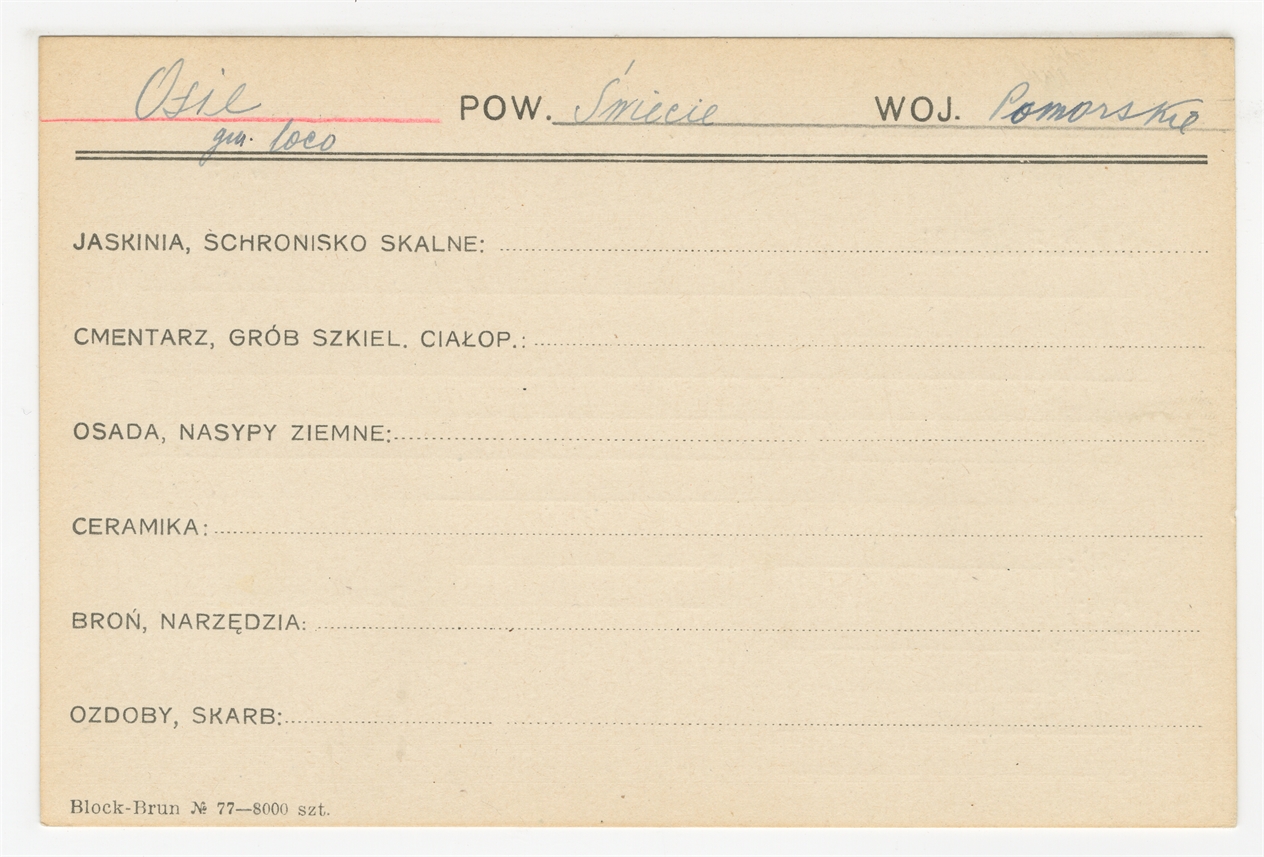 Osie POW. Świecie WOJ. Pomorskie
gm. loco
JASKINIA, SCHRONISKO SKALNE:
CMENTARZ, GRÓB SZKIEL. CIAŁOP.:
OSADA, NASYPY ZIEMNE:
CERAMIKA:
BROŃ, NARZĘDZIA:
OZDOBY, SKARB:
Block-Brun № 77—8000 szt.